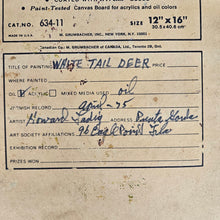 • Paint-Tested Canvas Board for acrylics and oil colors
CAT. NO. 634-11 SIZE 12"x16"
30.5 x 40.6 cm
M. GRUMBACHER INC., NEW YORK, N.Y. 10001
M. GRUMBACHER of CANADA, Ltd., Toronto 28, Ont.
TITLE OF PAINTING WHITE TAIL DEER
WHERE PAINTED PRICE
OIL ACRYLIC MIXED MEDIA USED oil
FINISH RECORD April - 75
ARTIST Howard ADDRESS Punta Gorda
ART SOCIETY AFFILIATIONS 96 Eagle Point Fla
EXHIBITION RECORD